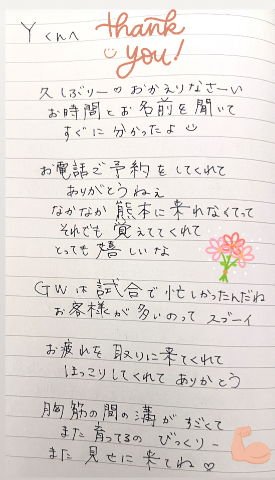 Yくんへ
thank
you!
久しぶりーのおかえりなさーい
お時間とお名前を聞いて
すぐに分かったよ
お電話で予約をしてくれて
ありがとうねぇ
なかなか熊本に来れなくてって
それでも覚えててくれて
とっても嬉しいな
GWは試合で忙しかったんだね
お客様が多いのってスゴーイ
お疲れを取りに来てくれて
ほっこりしてくれてありがとう
胸筋の間の溝がすごくて
また育ってるのびっくりー
また見せに来てね♡